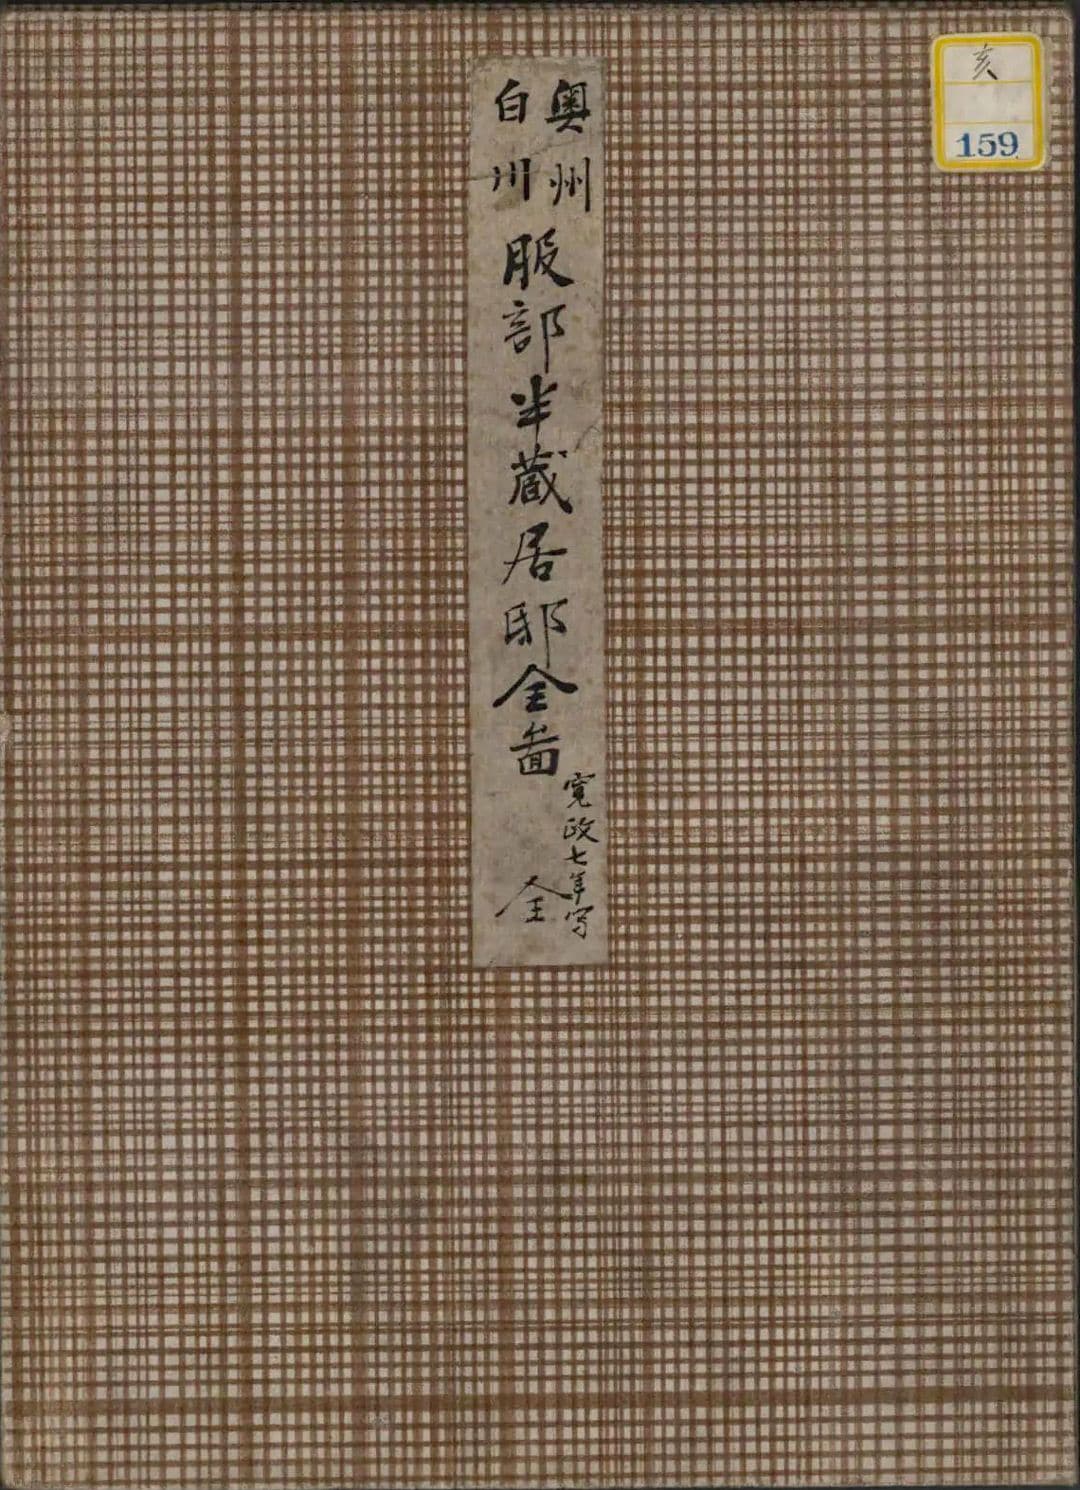 奥州
白川
服部半蔵居邸全啚
寛政七年写
全
亥
159